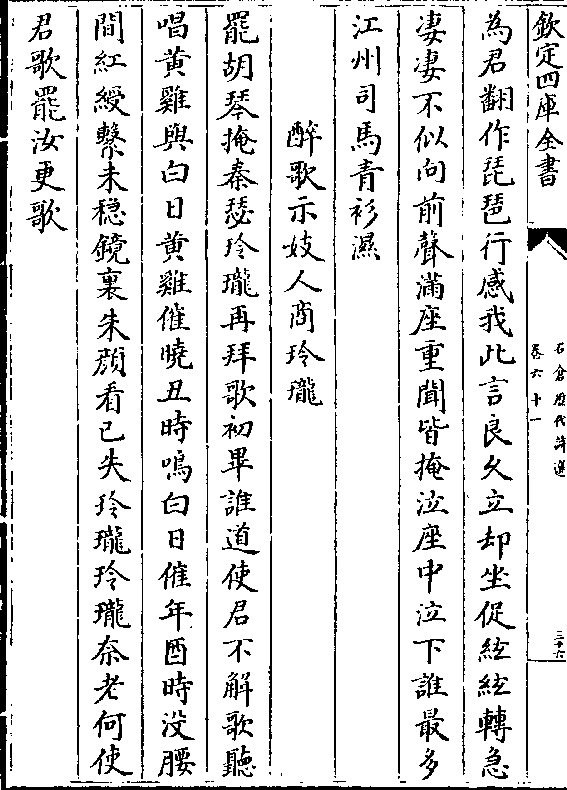 欽定四庫全書
石倉歷代詩選
卷六十一
三十六
為君翻作琵琶行感我此言良久立却坐促絃絃轉急
凄凄不似向前聲滿座重聞皆掩泣座中泣下誰最多
江州司馬青衫濕
醉歌示妓人商玲瓏
罷胡琴掩秦瑟玲瓏再拜歌初畢誰道使君不解歌聽
唱黃雞與白日黃雞催曉丑時鳴白日催年酉時没腰
間紅綬繫未穏鏡裏朱顔看已失玲瓏玲瓏奈老何使
君歌罷汝更歌